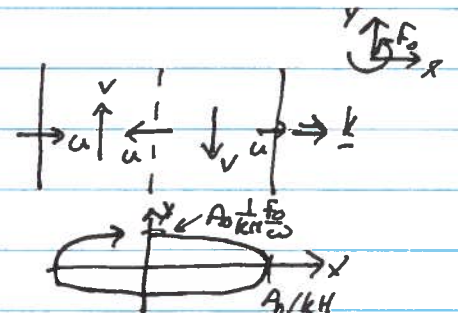 Y f₀
x
v
u u v u k
y A₀ 1/kH f₀/ω
x
A₀/kH